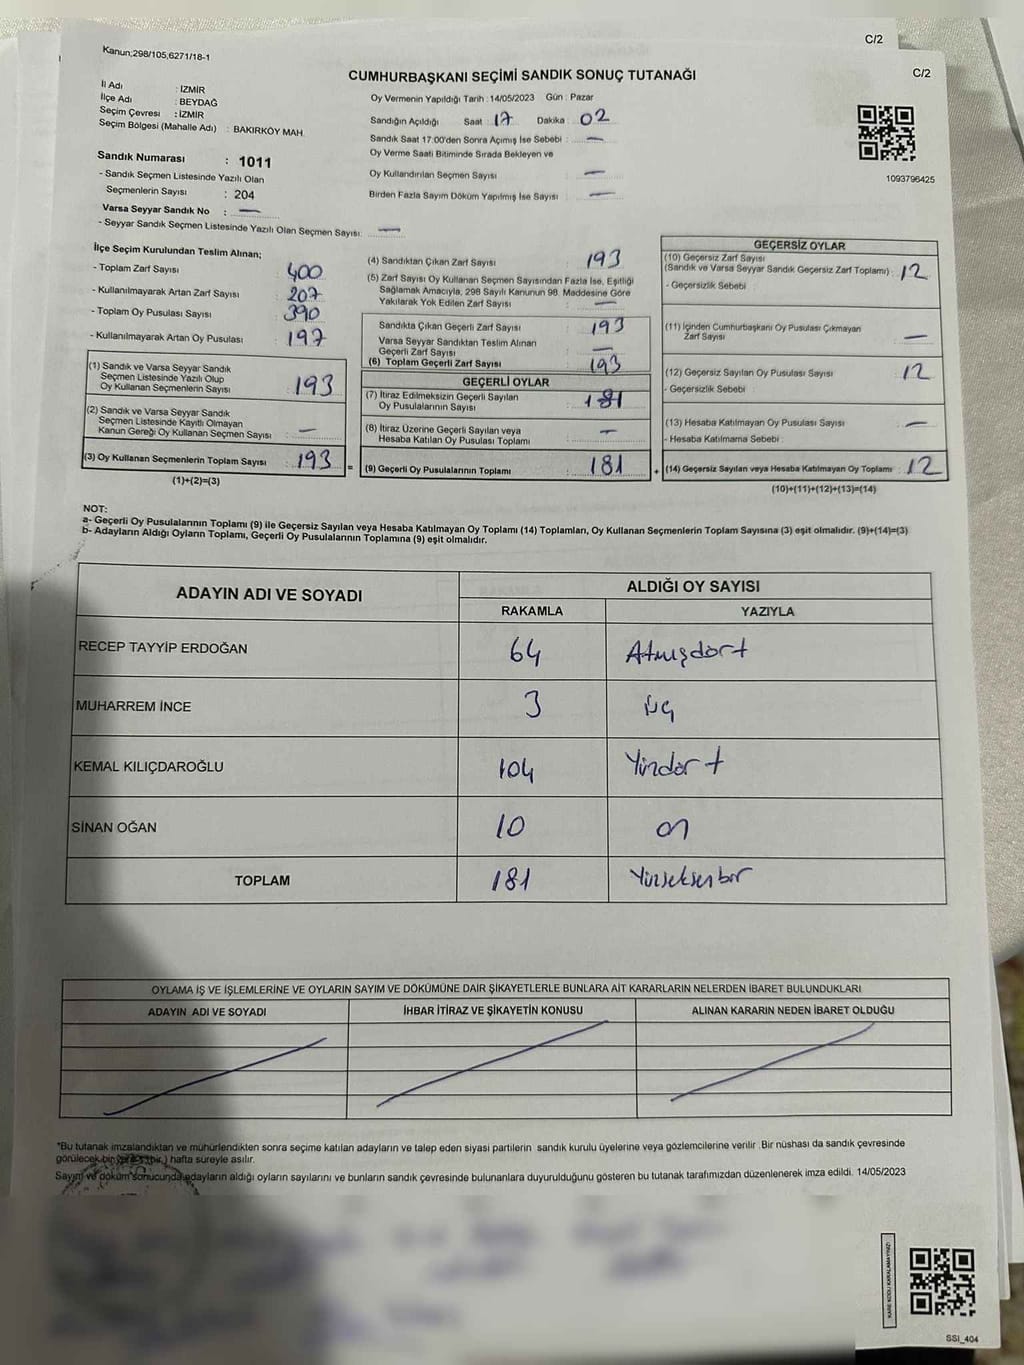 C/2
Kanun;298/105,6271/18-1
C/2
CUMHURBAŞKANI SEÇİMİ SANDIK SONUÇ TUTANAĞI
İl Adı : İZMİR
İlçe Adı : BEYDAĞ
Seçim Çevresi : İZMİR
Seçim Bölgesi (Mahalle Adı) : BAKIRKÖY MAH.
Oy Vermenin Yapıldığı Tarih : 14/05/2023 Gün : Pazar
Sandığın Açıldığı Saat : 17 Dakika : 02
Sandık Saat 17.00'den Sonra Açımış İse Sebebi : —
Oy Verme Saati Bitiminde Sırada Bekleyen ve
Oy Kullandırılan Seçmen Sayısı —
Birden Fazla Sayım Döküm Yapılmış İse Sayısı : —
1093796425
Sandık Numarası : 1011
- Sandık Seçmen Listesinde Yazılı Olan
Seçmenlerin Sayısı : 204
Varsa Seyyar Sandık No : —
- Seyyar Sandık Seçmen Listesinde Yazılı Olan Seçmen Sayısı: —
İlçe Seçim Kurulundan Teslim Alınan;
- Toplam Zarf Sayısı 400
- Kullanılmayarak Artan Zarf Sayısı : 207
- Toplam Oy Pusulası Sayısı : 390
- Kullanılmayarak Artan Oy Pusulası : 197
(1) Sandık ve Varsa Seyyar Sandık
Seçmen Listesinde Yazılı Olup
Oy Kullanan Seçmenlerin Sayısı : 193
(2) Sandık ve Varsa Seyyar Sandık
Seçmen Listesinde Kayıtlı Olmayan
Kanun Gereği Oy Kullanan Seçmen Sayısı : —
(3) Oy Kullanan Seçmenlerin Toplam Sayısı : 193 =
(1)+(2)=(3)
(4) Sandıktan Çıkan Zarf Sayısı : 193
(5) Zarf Sayısı Oy Kullanan Seçmen Sayısından Fazla İse, Eşitliği
Sağlamak Amacıyla, 298 Sayılı Kanunun 98. Maddesine Göre
Yakılarak Yok Edilen Zarf Sayısı : —
Sandıkta Çıkan Geçerli Zarf Sayısı : 193
Varsa Seyyar Sandıktan Teslim Alınan
Geçerli Zarf Sayısı : —
(6) Toplam Geçerli Zarf Sayısı : 193
GEÇERLİ OYLAR
(7) İtiraz Edilmeksizin Geçerli Sayılan
Oy Pusulalarının Sayısı : 181
(8) İtiraz Üzerine Geçerli Sayılan veya
Hesaba Katılan Oy Pusulası Toplamı : —
(9) Geçerli Oy Pusulalarının Toplamı : 181 +
GEÇERSİZ OYLAR
(10) Geçersiz Zarf Sayısı
(Sandık ve Varsa Seyyar Sandık Geçersiz Zarf Toplamı) : 12
- Geçersizlik Sebebi :
(11) İçinden Cumhurbaşkanı Oy Pusulası Çıkmayan
Zarf Sayısı : —
(12) Geçersiz Sayılan Oy Pusulası Sayısı : 12
- Geçersizlik Sebebi :
(13) Hesaba Katılmayan Oy Pusulası Sayısı : —
- Hesaba Katılmama Sebebi :
(14) Geçersiz Sayılan veya Hesaba Katılmayan Oy Toplamı : 12
(10)+(11)+(12)+(13)=(14)
NOT:
a- Geçerli Oy Pusulalarının Toplamı (9) ile Geçersiz Sayılan veya Hesaba Katılmayan Oy Toplamı (14) Toplamları, Oy Kullanan Seçmenlerin Toplam Sayısına (3) eşit olmalıdır. (9)+(14)=(3)
b- Adayların Aldığı Oyların Toplamı, Geçerli Oy Pusulalarının Toplamına (9) eşit olmalıdır.
ADAYIN ADI VE SOYADI ALDIĞI OY SAYISI
RAKAMLA YAZIYLA
RECEP TAYYİP ERDOĞAN 64 Atmışdört
MUHARREM İNCE 3 üç
KEMAL KILIÇDAROĞLU 104 Yüzdört
SİNAN OĞAN 10 on
TOPLAM 181 Yüzseksenbir
OYLAMA İŞ VE İŞLEMLERİNE VE OYLARIN SAYIM VE DÖKÜMÜNE DAİR ŞİKAYETLERLE BUNLARA AİT KARARLARIN NELERDEN İBARET BULUNDUKLARI
ADAYIN ADI VE SOYADI İHBAR İTİRAZ VE ŞİKAYETİN KONUSU ALINAN KARARIN NEDEN İBARET OLDUĞU
*Bu tutanak imzalandıktan ve mühürlendikten sonra seçime katılan adayların ve talep eden siyasi partilerin sandık kurulu üyelerine veya gözlemcilerine verilir. Bir nüshası da sandık çevresinde
görülecek bir yere 1(bir) hafta süreyle asılır.
Sayım ve döküm sonucunda adayların aldığı oyların sayılarını ve bunların sandık çevresinde bulunanlara duyurulduğunu gösteren bu tutanak tarafımızdan düzenlenerek imza edildi. 14/05/2023
KARE KODU KARALAMAYINIZ!
SSI_404